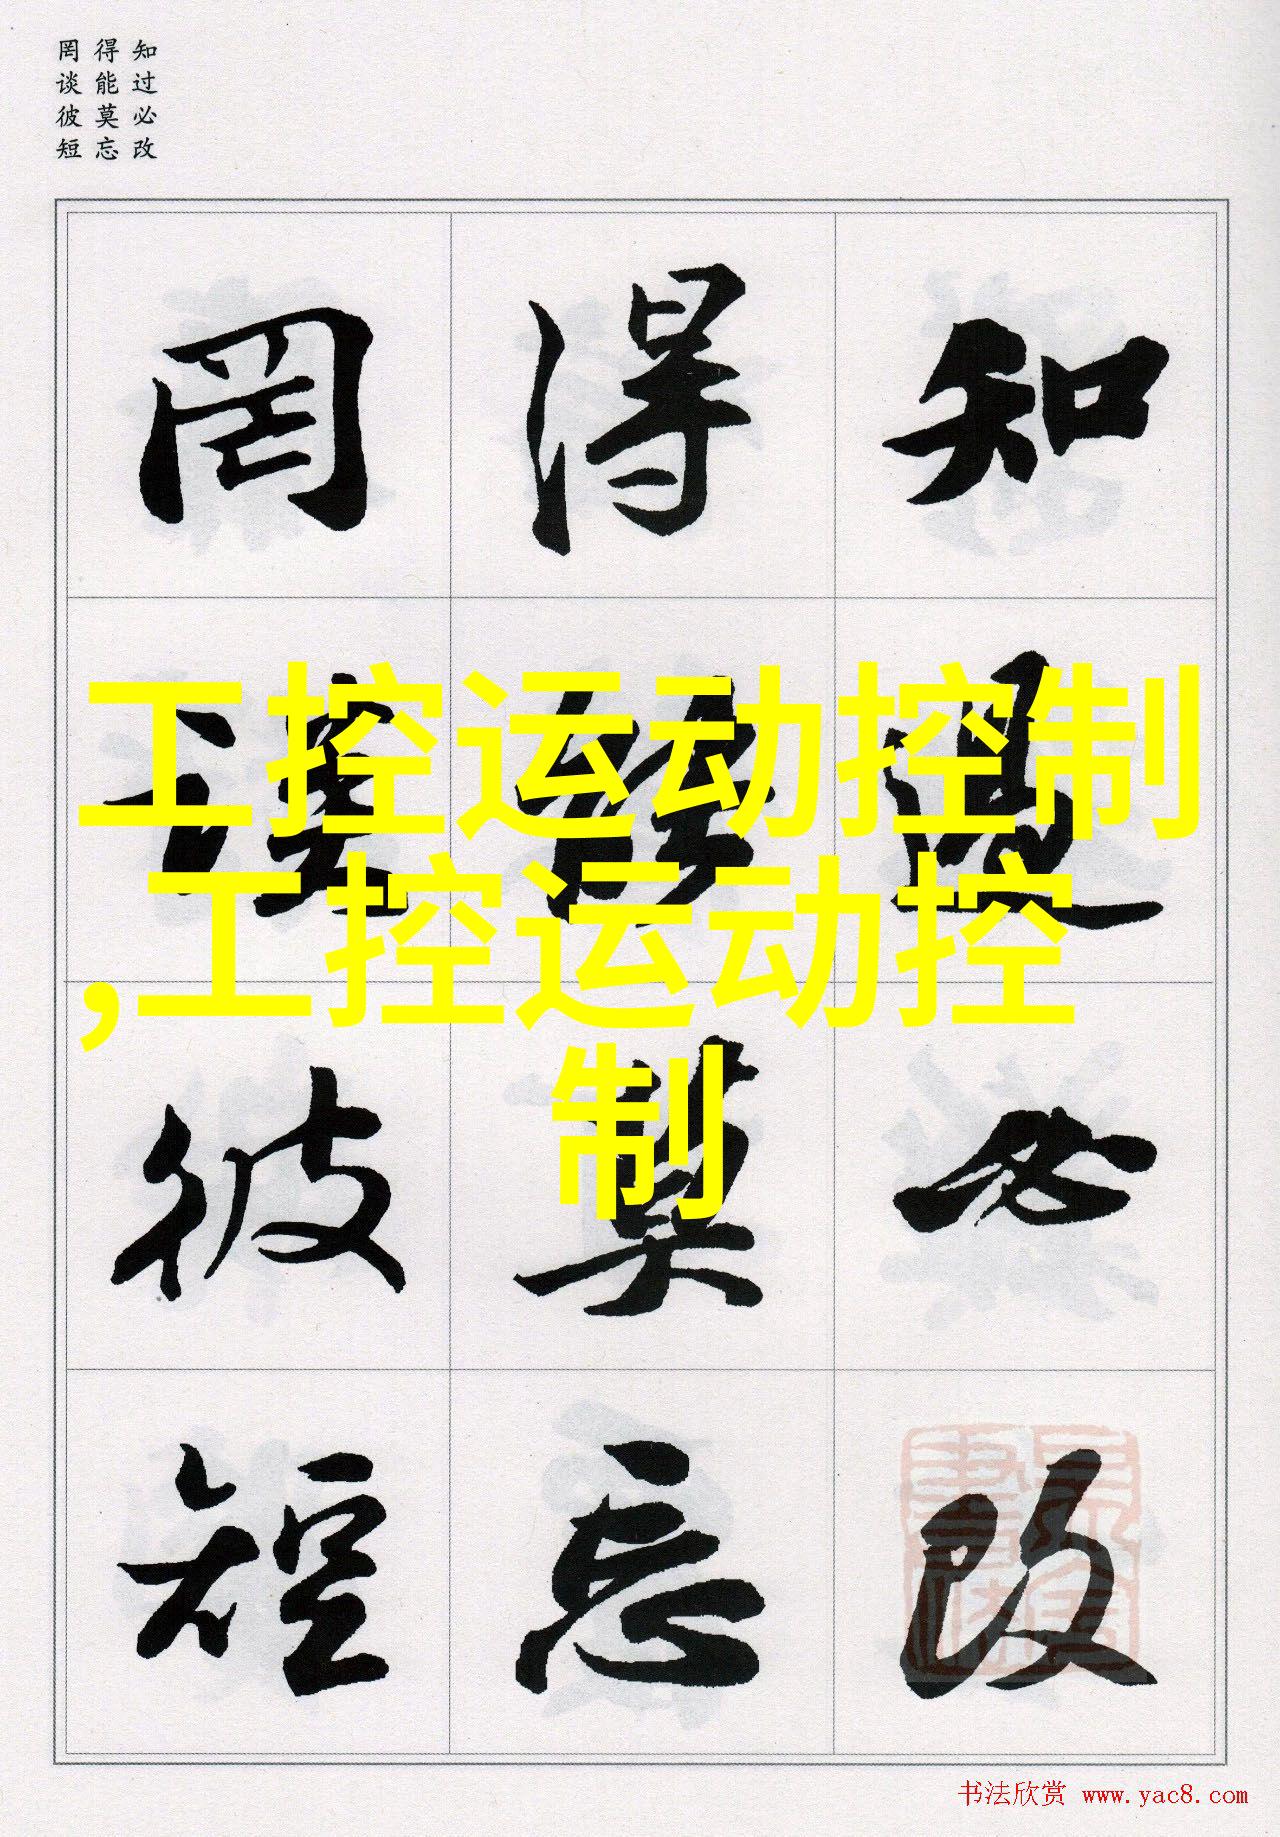 知过必改
得能莫忘
罔谈彼短
知過必改
得能莫忘
罔談彼短
工控运动控制
,工控运动控
制
书法欣赏 www.yac8.com